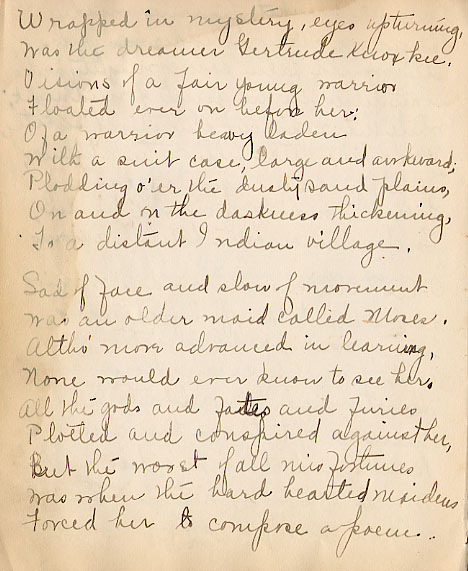 Wrapped in mystery, eyes upturning,
Was the dreamer Gertrude Knoxkee.
Visions of a fair young warrior
Floated ever on before her;
Of a warrior heavy laden
With a suit case, large and awkward;
Plodding o'er the dusty sand plains,
On and on the darkness thickening,
To a distant Indian village.
Sad of face and slow of movement
Was an older maid called Moses.
Altho' more advanced in learning,
None would ever know to see her.
All the gods and fates and furies
Plotted and conspired against her,
But the worst of all misfortunes
Was when the hard hearted maidens
Forced her to compose a poem.